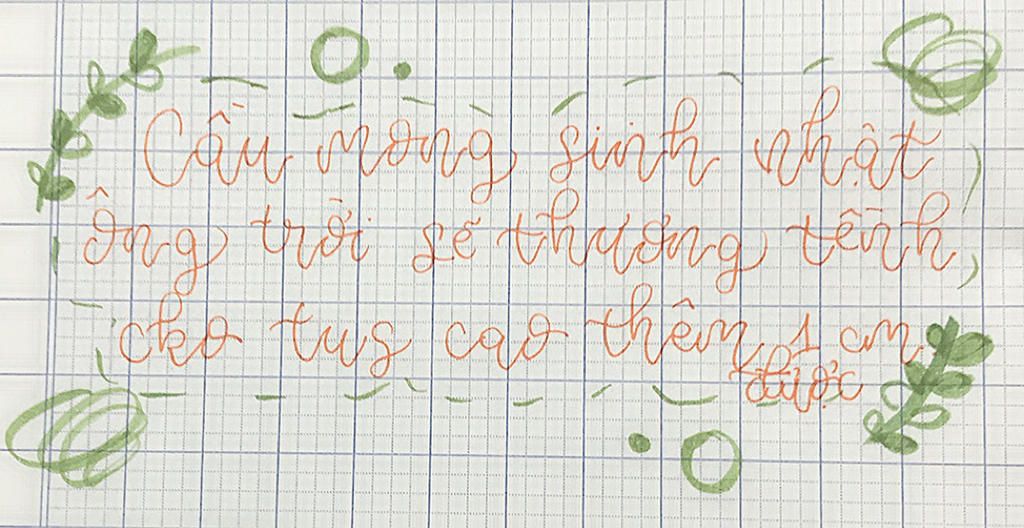 Cầu mong sinh nhật
ông trời sẽ thương tềnh
cho tus cao thêm 1 cm
được